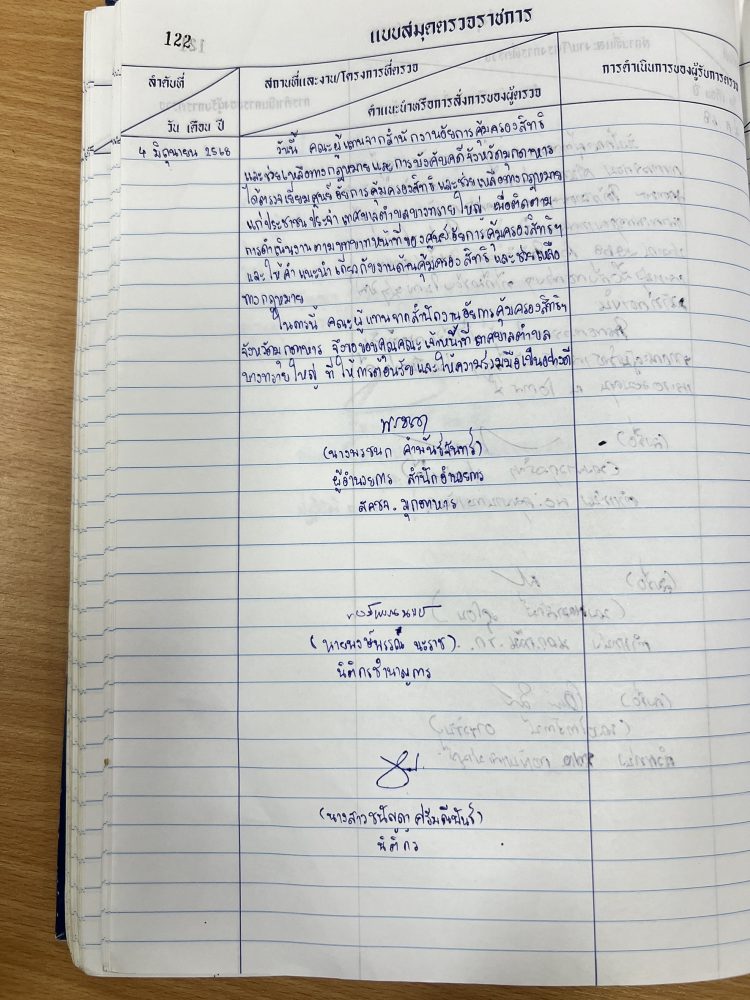 122
แบบสมุดตรวจราชการ
ลำดับที่
วัน เดือน ปี
สถานที่และงาน/โครงการที่ตรวจ
คำแนะนำหรือการสั่งการของผู้ตรวจ
การดำเนินการของผู้รับการตรวจ
4 มิถุนายน 2568
วันนี้ คณะผู้แทนจากสำนักงานอัยการคุ้มครองสิทธิ
และช่วยเหลือทางกฎหมายและการบังคับคดีจังหวัดมุกดาหาร
ได้ตรวจเยี่ยมศูนย์อัยการคุ้มครองสิทธิและช่วยเหลือทางกฎหมาย
แก่ประชาชนประจำเทศบาลตำบลบางทรายใหญ่ เพื่อติดตาม
การดำเนินงานตามบทบาทหน้าที่ของศูนย์อัยการคุ้มครองสิทธิฯ
และให้คำแนะนำเกี่ยวกับงานด้านคุ้มครองสิทธิและช่วยเหลือ
ทางกฎหมาย
ในการนี้ คณะผู้แทนจากสำนักงานอัยการคุ้มครองสิทธิฯ
จังหวัดมุกดาหาร จึงขอขอบคุณคณะเจ้าหน้าที่เทศบาลตำบล
บางทรายใหญ่ ที่ให้การต้อนรับและให้ความร่วมมือเป็นอย่างดี
(นางพรชนก
ผู้อำนวยการ สำนักอำนวยการ
สคชจ. มุกดาหาร
(นายพงษ์พรรณ์ นะราช)
นิติกรชำนาญการ
(นางสาว
นิติกร